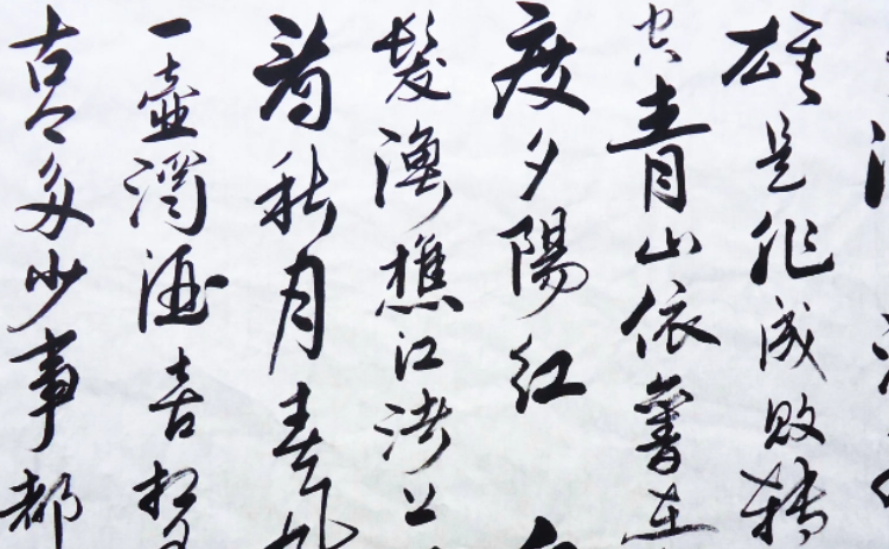 雄是非成敗轉
空青山依舊在
度夕陽紅
髮漁樵江渚上
看秋月春風
一壺濁酒喜相
古今多少事都